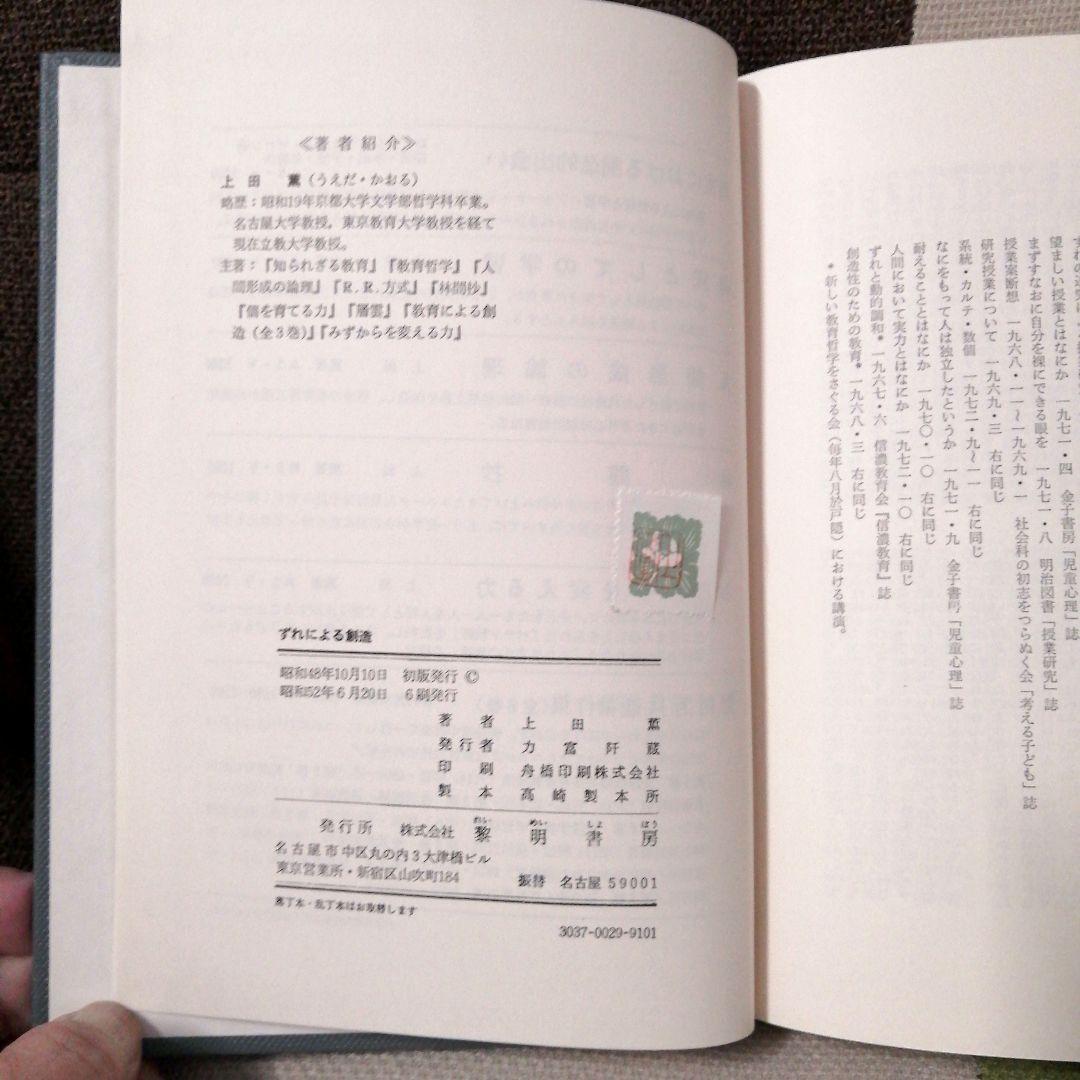 《著者紹介》
上田　薫(うえだ・かおる)
略歴：昭和19年京都大学文学部哲学科卒業。
名古屋大学教授，東京教育大学教授を経て
現在立教大学教授。
主著：『知られざる教育』『教育哲学』『人
間形成の論理』『R.R.方式』『林間抄』
『個を育てる力』『層雲』『教育による創
造(全3巻)』『みずからを変える力』
ずれによる創造
昭和48年10月10日　初版発行 ©
昭和52年6月20日　6刷発行
著者　上田　薫
発行者　力富阡蔵
印刷　舟橋印刷株式会社
製本　高崎製本所
発行所　株式会社　黎明書房
れい　めい　しょ　ぼう
名古屋市中区丸の内3大津橋ビル
東京営業所・新宿区山吹町184　振替　名古屋59001
落丁本・乱丁本はお取替します
3037-0029-9101
望ましい授業とはなにか　一九七一・四　金子書房「児童心理」誌
まずすなおに自分を裸にできる眼を　一九七一・八　明治図書「授業研究」誌
授業案断想　一九六八・一一〜一九六九・一　社会科の初志をつらぬく会「考える子ども」誌
研究授業について　一九六九・三　右に同じ
系統・カルテ・数個　一九七二・九〜一一　右に同じ
なにをもって人は独立したというか　一九七一・九　金子書房「児童心理」誌
耐えることとはなにか　一九七〇・一〇　右に同じ
人間において実力とはなにか　一九七二・一〇　右に同じ
ずれと動的調和＊　一九六七・六　信濃教育会『信濃教育』誌
創造性のための教育＊　一九六八・三　右に同じ
＊新しい教育哲学をさぐる会（毎年八月於戸隠）における講演。